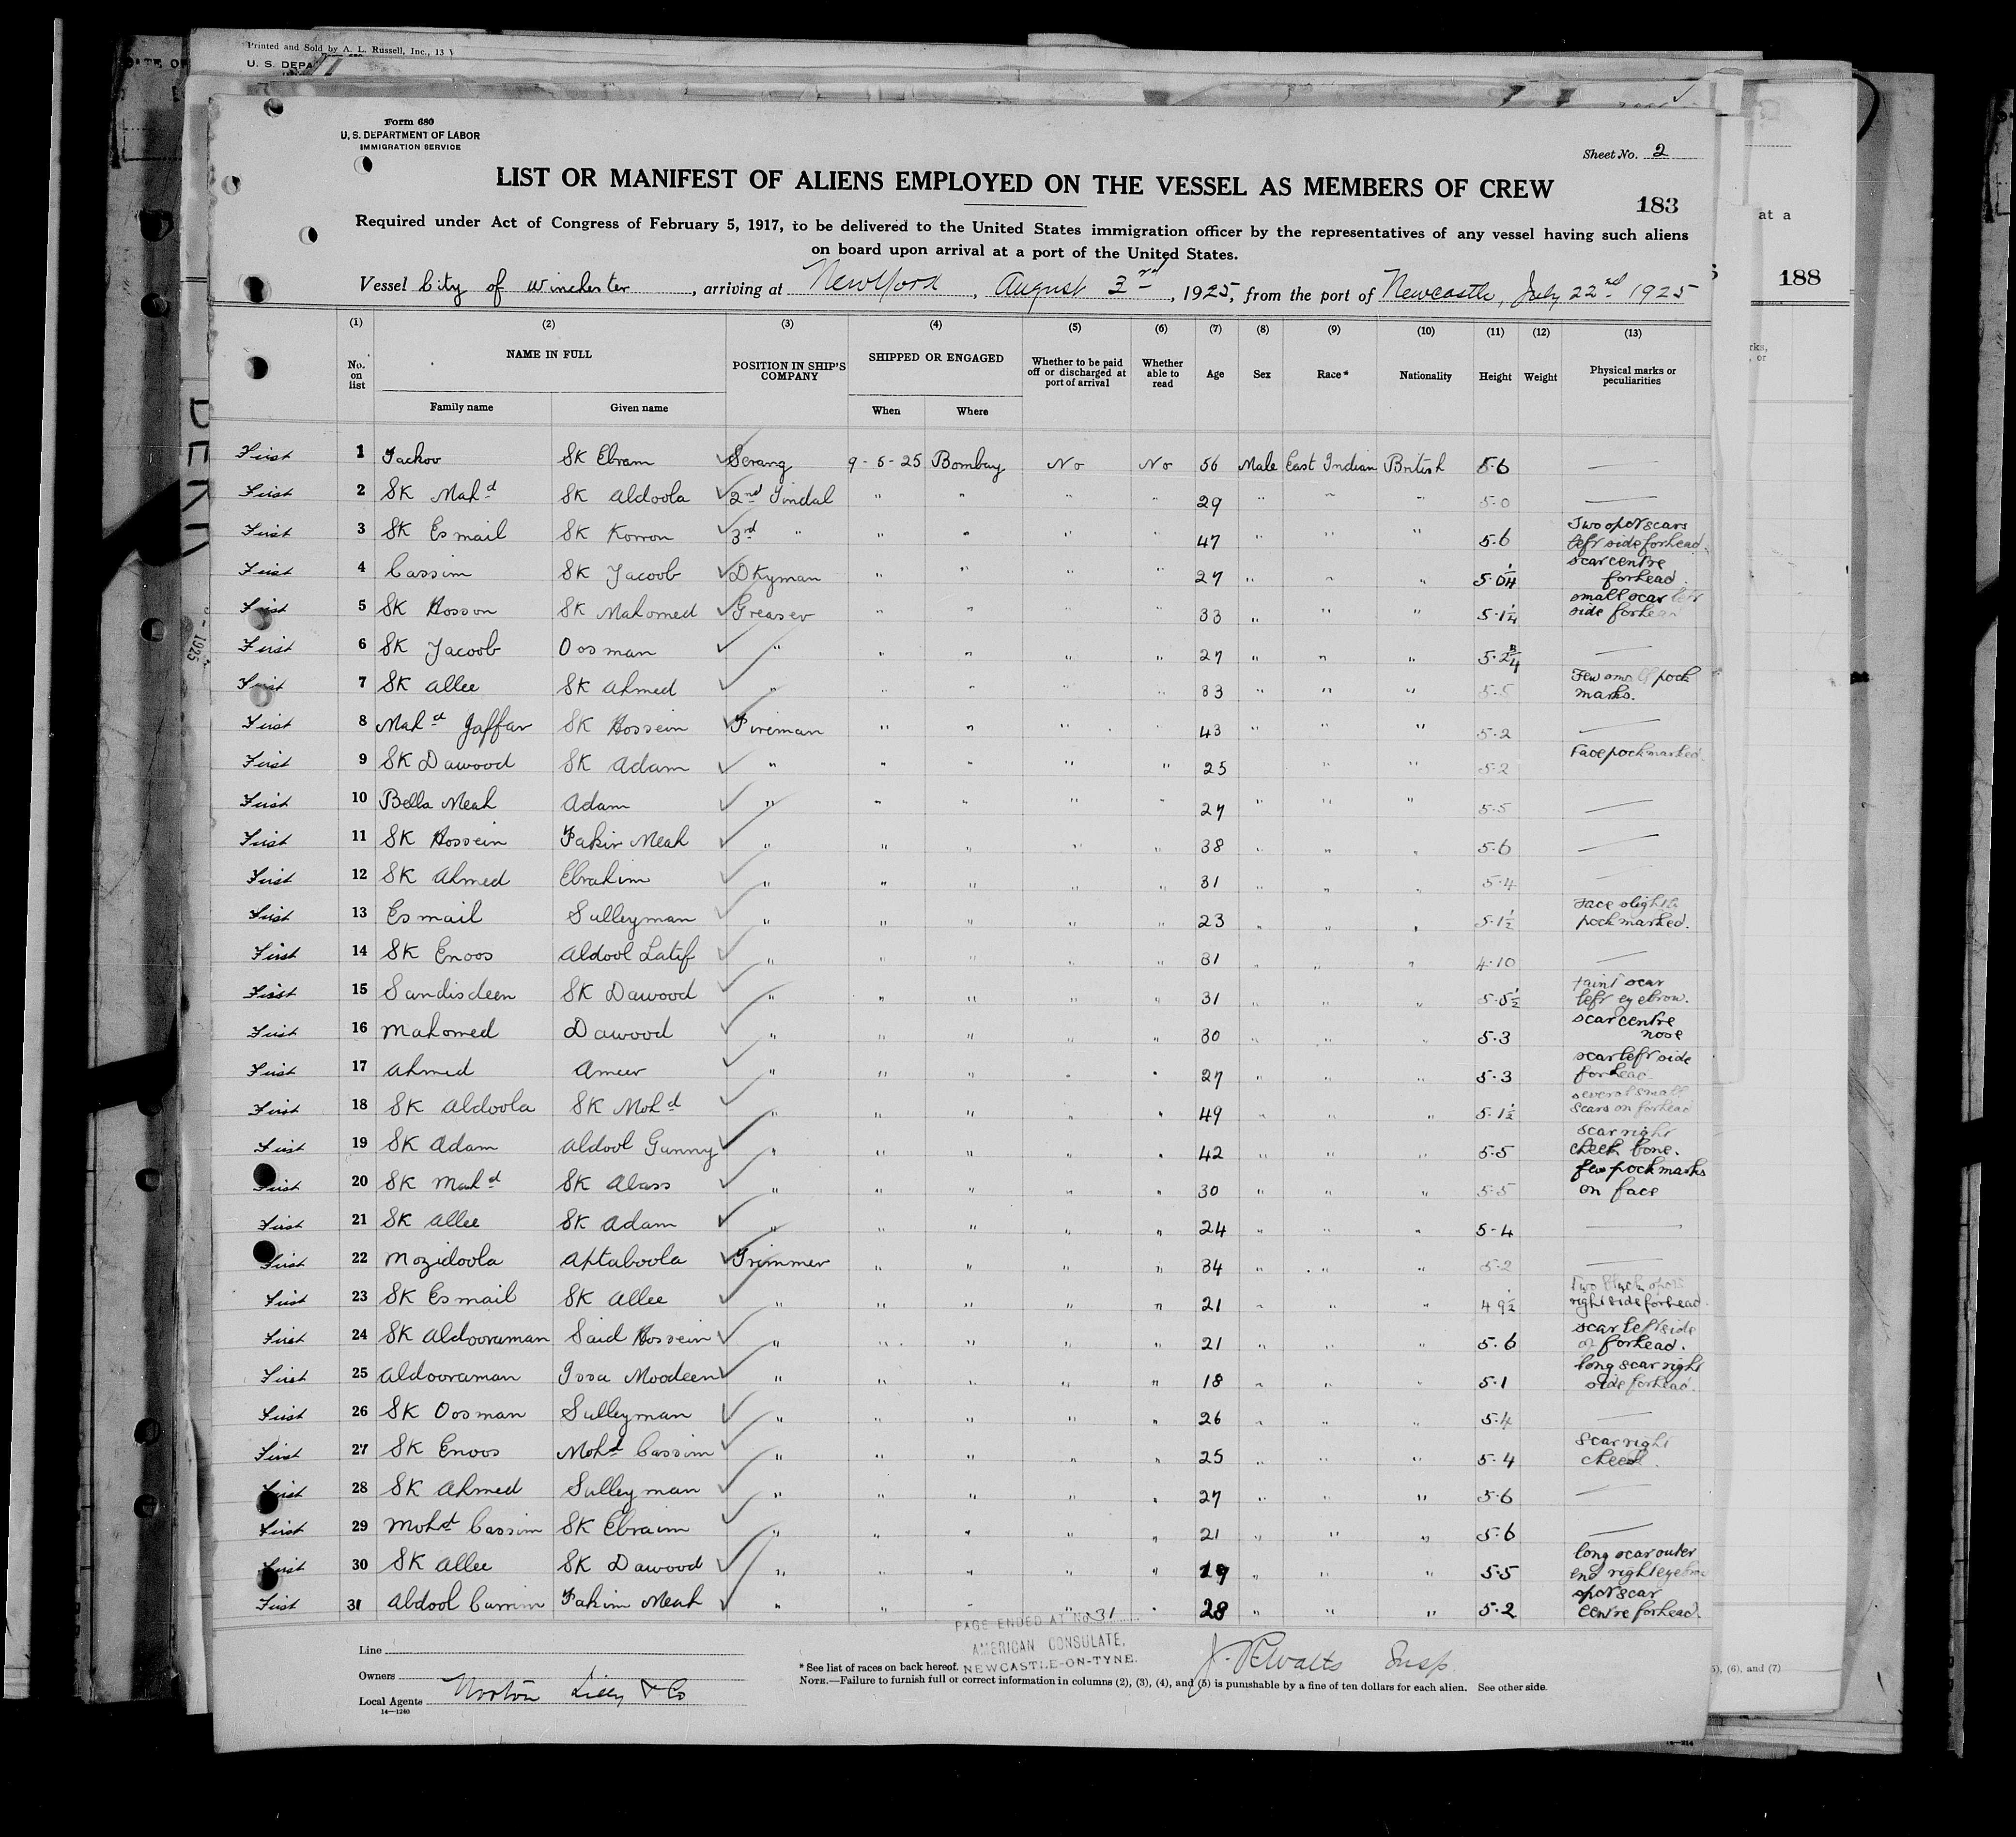 Printed and Sold by A. L. Russell, Inc., 13
U. S. DEPA
Form 680
U. S. DEPARTMENT OF LABOR
IMMIGRATION SERVICE
Sheet No. 2
LIST OR MANIFEST OF ALIENS EMPLOYED ON THE VESSEL AS MEMBERS OF CREW
183
Required under Act of Congress of February 5, 1917, to be delivered to the United States immigration officer by the representatives of any vessel having such aliens
on board upon arrival at a port of the United States.
at a
188
Vessel City of Winchester, arriving at New York, August 3rd, 1925, from the port of Newcastle, July 22nd 1925
(1) (2) (3) (4) (5) (6) (7) (8) (9) (10) (11) (12) (13)
No. on list NAME IN FULL Family name Given name POSITION IN SHIP'S COMPANY SHIPPED OR ENGAGED When Where Whether to be paid off or discharged at port of arrival Whether able to read Age Sex Race* Nationality Height Weight Physical marks or peculiarities
First 1 Jackov SK Ebram Serang 9-5-25 Bombay No No 56 Male East Indian British 5.6 —
First 2 SK Mahd SK Aldoola 2nd Tindal " " " " 29 " " " 5.0 —
First 3 SK Esmail SK Korron 3rd " " " " " 47 " " " 5.6 Two spot scars left side forhead.
First 4 Cassim SK Jacoob DKyman " " " " 27 " " " 5.0¼ scar centre forhead.
First 5 SK Hosson SK Mahomed Greaser " " " " 33 " " " 5.1¼ small scar left side forhead
First 6 SK Jacoob Oosman " " " " " 27 " " " 5.2¾ —
First 7 SK Allee SK Ahmed " " " " " 33 " " " 5.5 Few small pock marks.
First 8 Mahd Jaffar SK Hossein Fireman " " " " 43 " " " 5.2 —
First 9 SK Dawood SK Adam " " " " " 25 " " 5.2 Face pock marked.
First 10 Bella Meah Adam " " " " " 27 " " " 5.5 —
First 11 SK Hossein Fakir Meah " " " " " 38 " " " 5.6 —
First 12 SK Ahmed Ebrahim " " " " " 31 " " " 5.4 —
First 13 Esmail Sulleyman " " " " " 23 " " " 5.1½ Face slightly pock marked.
First 14 SK Enoos Aldool Latif " " " " " 31 " " " 4.10 —
First 15 Sandisdeen SK Dawood " " " " " 31 " " " 5.5½ faint scar left eyebrow.
First 16 Mahomed Dawood " " " " " 30 " " " 5.3 scar centre nose
First 17 Ahmed Ameer " " " " " 27 " " " 5.3 scar left side forhead
First 18 SK Aldoola SK Mohd " " " " " 49 " " " 5.1½ several small scars on forhead
First 19 SK Adam Aldool Gunny " " " " " 42 " " " 5.5 scar right cheek bone.
First 20 SK Mahd SK Abass " " " " " 30 " " " 5.5 few pock marks on face
First 21 SK Allee SK Adam " " " " " 24 " " " 5.4 —
First 22 Mozidoola Aptaboola Trimmer " " " " 34 " " " 5.2 —
First 23 SK Esmail SK Allee " " " " " 21 " " " 4 9½ Two black spots right side forhead.
First 24 SK Aldooraman Said Hossein " " " " " 21 " " " 5.6 scar left side of forhead.
First 25 Aldooraman Issa Moodeen " " " " " 18 " " " 5.1 long scar right side forhead.
First 26 SK Oosman Sulleyman " " " " " 26 " " " 5.4 —
First 27 SK Enoos Mohd Cassim " " " " " 25 " " " 5.4 Scar right cheek.
First 28 SK Ahmed Sulleyman " " " " " 27 " " " 5.6 —
First 29 Mohd Cassim SK Ebraim " " " " " 21 " " " 5.6 —
First 30 SK Allee SK Dawood " " " " " 19 " " " 5.5 long scar outer end right eyebrow
First 31 Abdool Carrim Fakim Meah " " " " " 28 " " " 5.2 spot scar centre forhead.
PAGE ENDED AT No 31
AMERICAN CONSULATE,
NEWCASTLE-ON-TYNE.
Line
Owners
Local Agents Norton Lilly & Co
14—1240
* See list of races on back hereof.
NOTE.—Failure to furnish full or correct information in columns (2), (3), (4), and (5) is punishable by a fine of ten dollars for each alien. See other side.
Insp
5), (6), and (7)